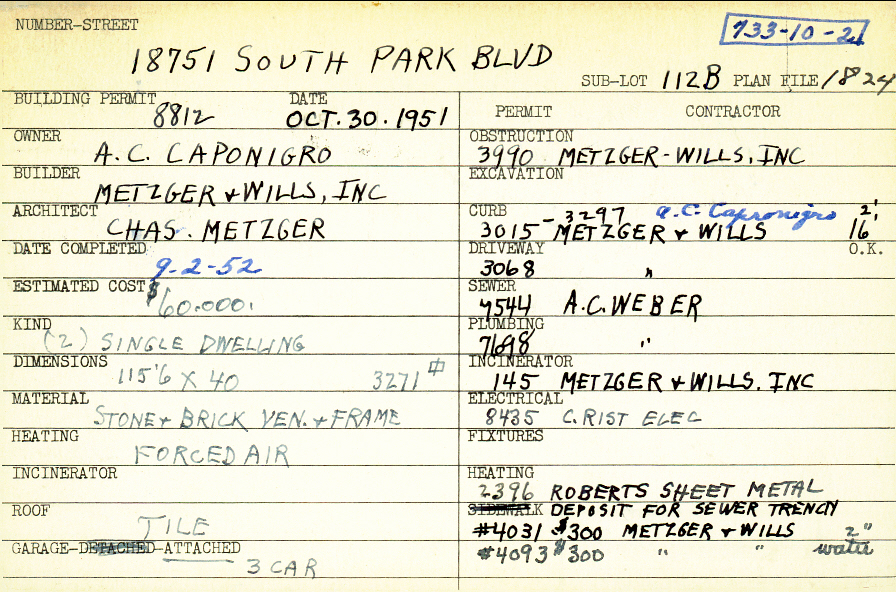 NUMBER-STREET
733-10-21
18751 SOUTH PARK BLVD
SUB-LOT 112B PLAN FILE 1824
BUILDING PERMIT 8812 DATE OCT. 30. 1951
OWNER A.C. CAPONIGRO
BUILDER METZGER & WILLS, INC
ARCHITECT CHAS. METZGER
DATE COMPLETED 9-2-52
ESTIMATED COST $60.000.
KIND (2) SINGLE DWELLING
DIMENSIONS 115'6 X 40 3271
MATERIAL STONE & BRICK VEN. & FRAME
HEATING FORCED AIR
INCINERATOR
ROOF TILE
GARAGE-DETACHED-ATTACHED 3 CAR
PERMIT CONTRACTOR
OBSTRUCTION 3990 METZGER-WILLS, INC
EXCAVATION
CURB - 3297 A.C. Capronigro 2'
3015 METZGER & WILLS 16'
O.K.
DRIVEWAY 3068 "
SEWER 7544 A.C. WEBER
PLUMBING 7698 "
INCINERATOR 145 METZGER & WILLS. INC
ELECTRICAL 8435 C. RIST ELEC
FIXTURES
HEATING 2396 ROBERTS SHEET METAL
SIDEWALK DEPOSIT FOR SEWER TRENCH
#4031 $300 METZGER & WILLS 2"
#4093 $300 " " water